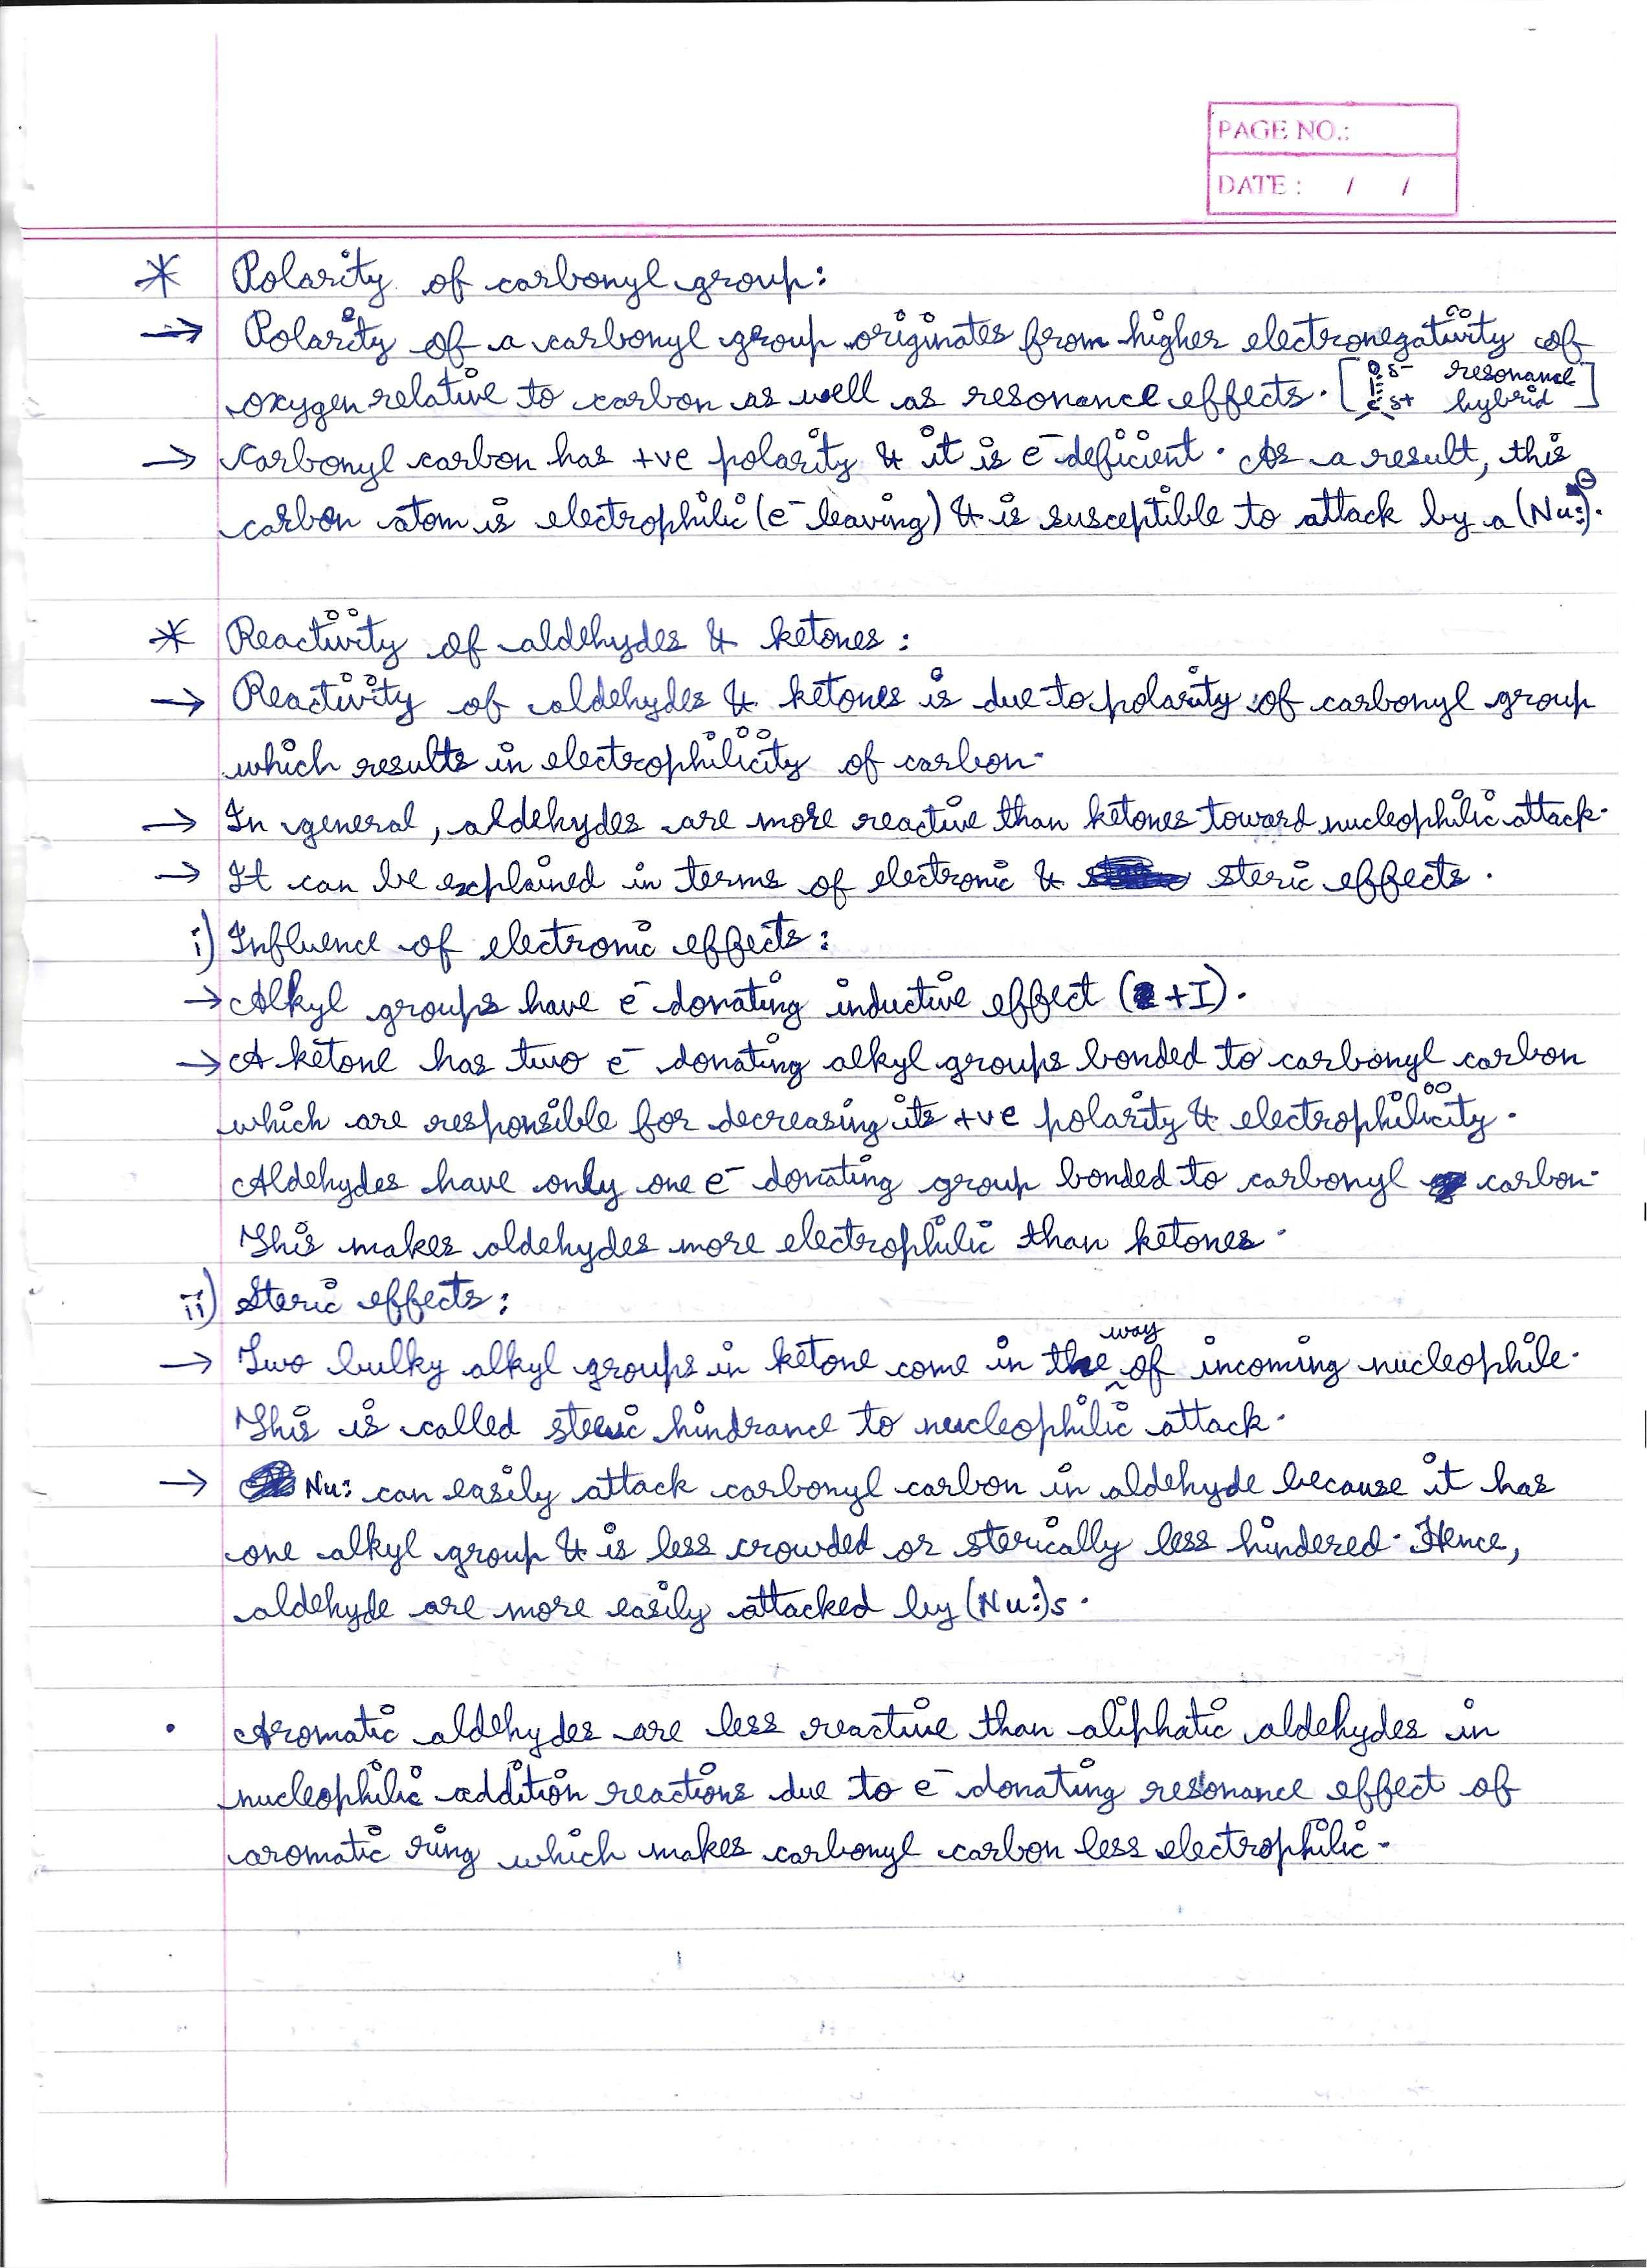 PAGE NO.:
DATE : / /
* Polarity of carbonyl group:
→ Polarity of a carbonyl group originates from higher electronegativity of
oxygen relative to carbon as well as resonance effects. [O δ- C δ+ resonance hybrid]
→ Carbonyl carbon has +ve polarity & it is e⁻ deficient. As a result, this
carbon atom is electrophilic (e⁻ leaving) & is susceptible to attack by a (Nu:)⊖.
* Reactivity of aldehydes & ketones :
→ Reactivity of aldehydes & ketones is due to polarity of carbonyl group
which results in electrophilicity of carbon.
→ In general, aldehydes are more reactive than ketones toward nucleophilic attack.
→ It can be explained in terms of electronic & steric effects.
i) Influence of electronic effects:
→ Alkyl groups have e⁻ donating inductive effect (+I).
→ A ketone has two e⁻ donating alkyl groups bonded to carbonyl carbon
which are responsible for decreasing its +ve polarity & electrophilicity.
Aldehydes have only one e⁻ donating group bonded to carbonyl carbon.
This makes aldehydes more electrophilic than ketones.
ii) Steric effects:
→ Two bulky alkyl groups in ketone come in the way of incoming nucleophile.
This is called steric hindrance to nucleophilic attack.
→ Nu: can easily attack carbonyl carbon in aldehyde because it has
one alkyl group & is less crowded or sterically less hindered. Hence,
aldehyde are more easily attacked by (Nu:)s.
• Aromatic aldehydes are less reactive than aliphatic aldehydes in
nucleophilic addition reactions due to e⁻ donating resonance effect of
aromatic ring which makes carbonyl carbon less electrophilic.